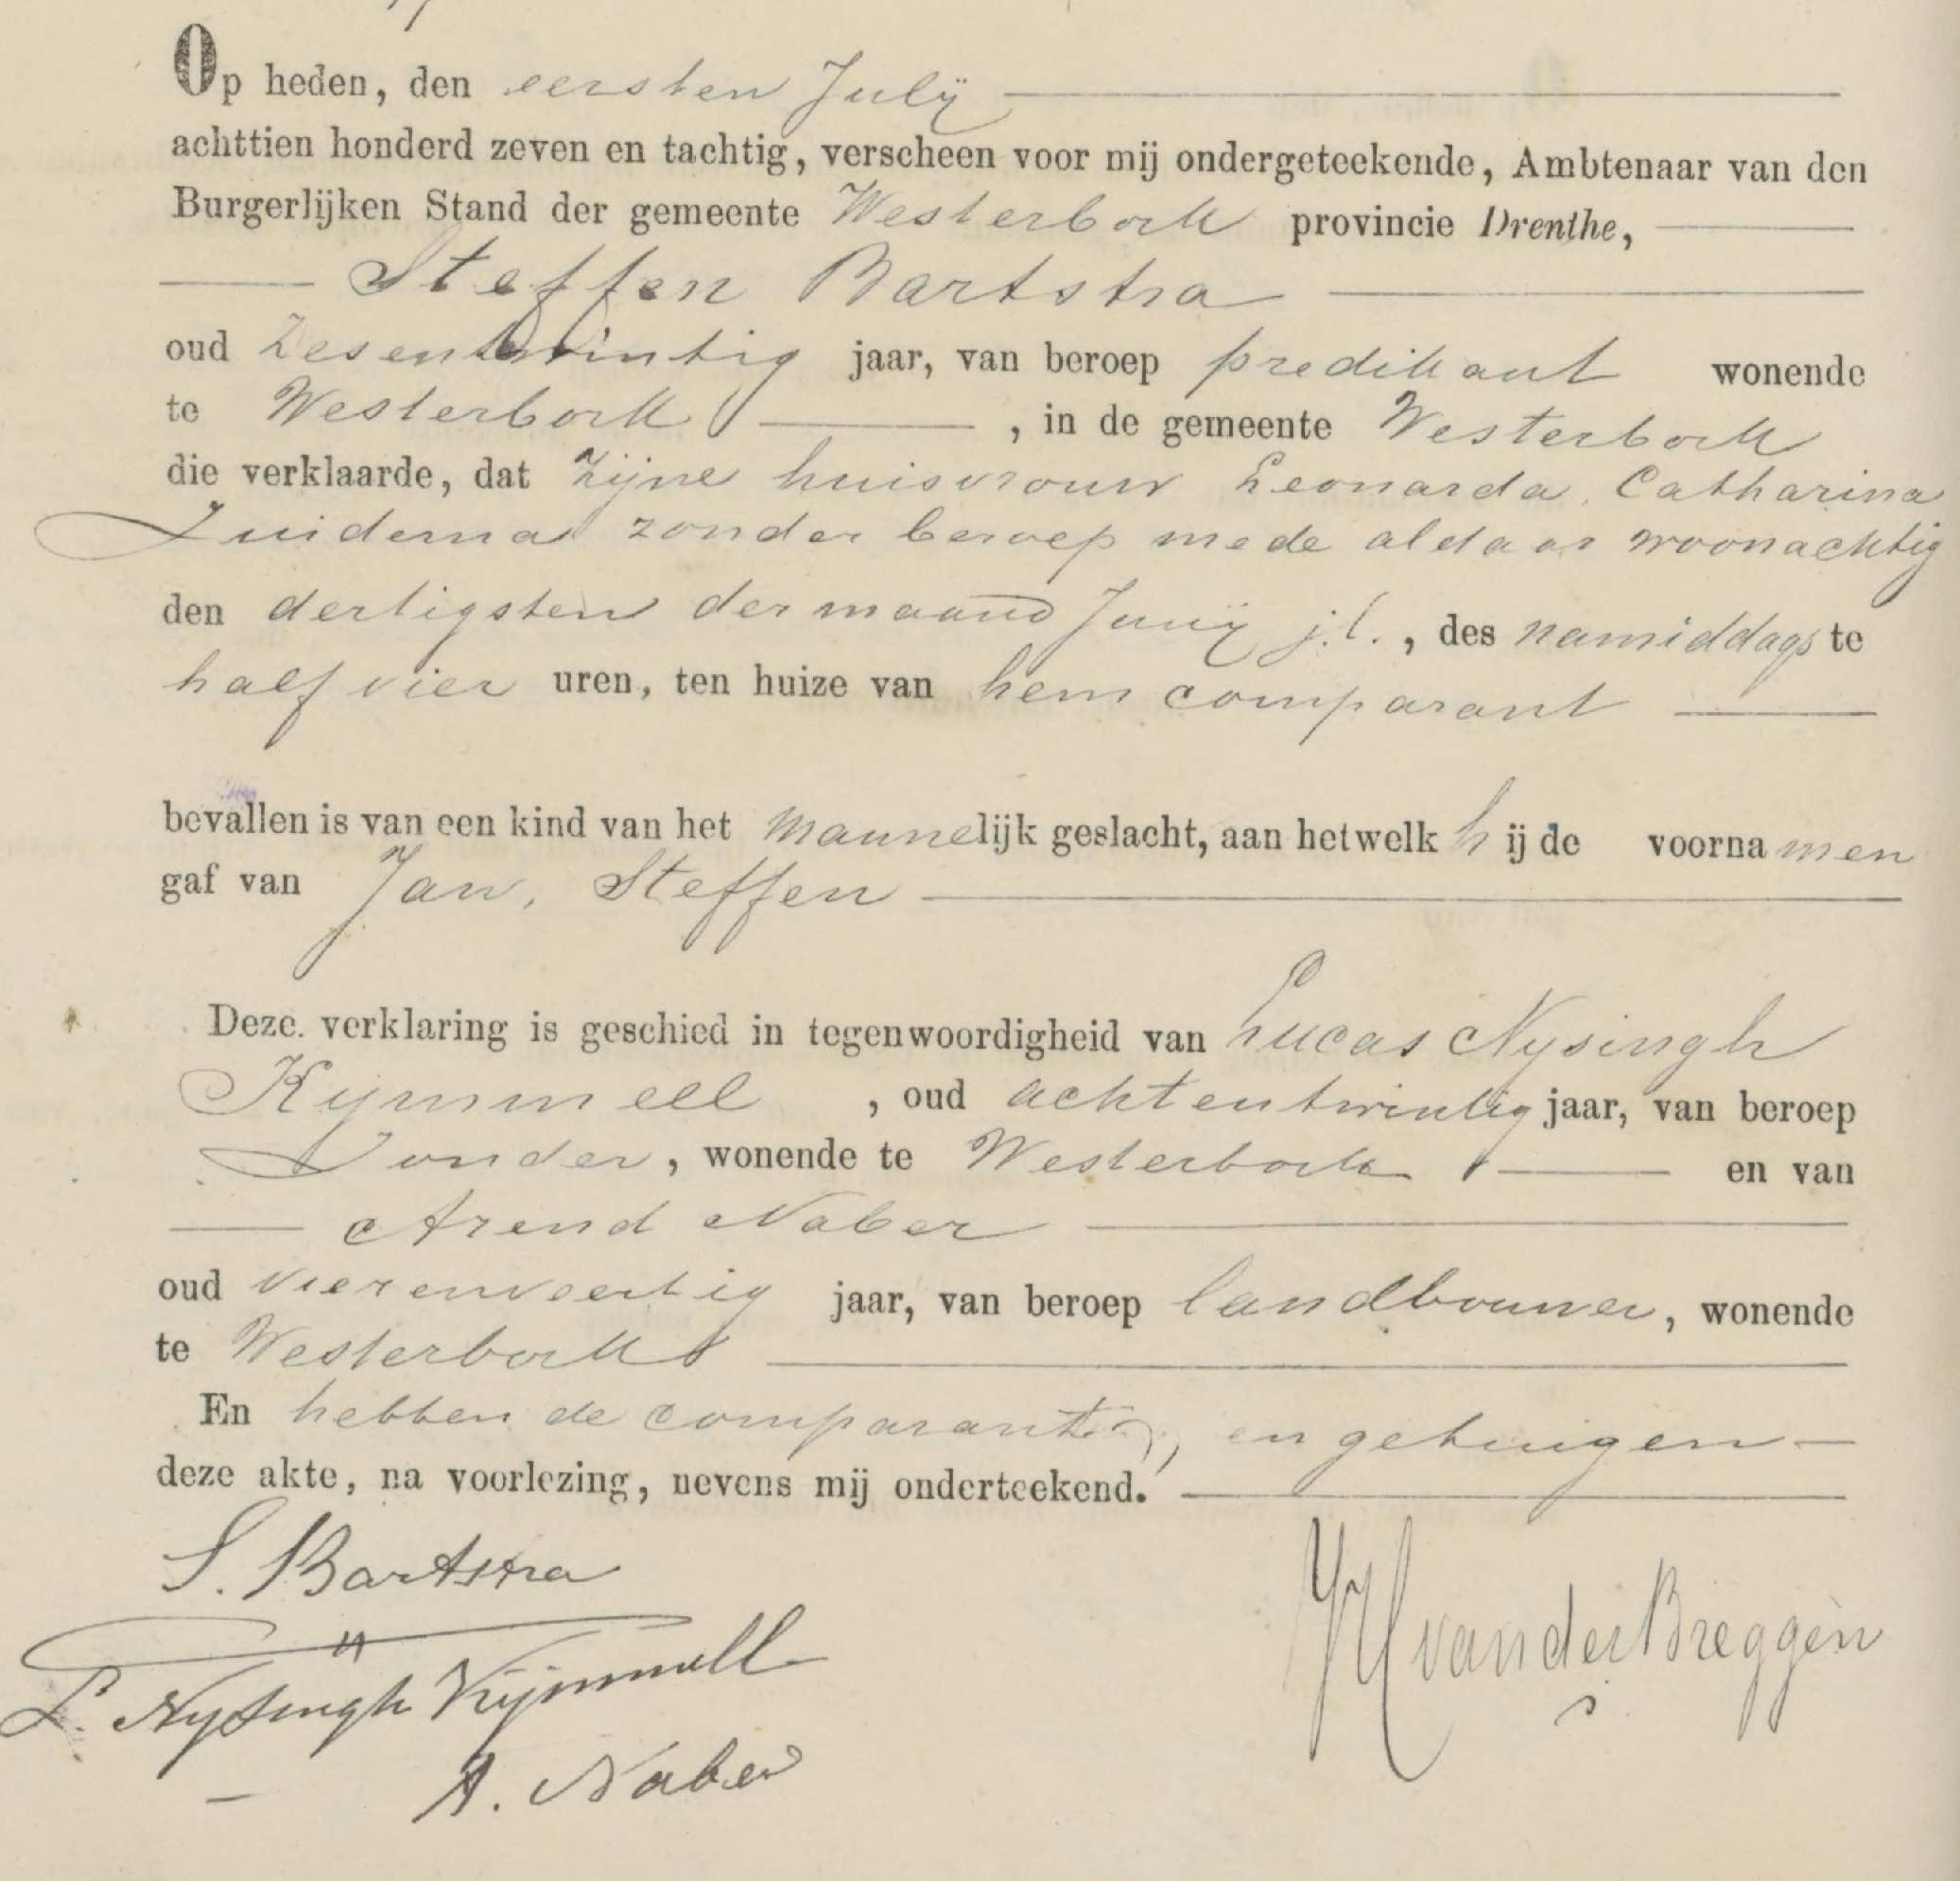 Op heden, den eersten Julÿ
achttien honderd zeven en tachtig, verscheen voor mij ondergeteekende, Ambtenaar van den
Burgerlijken Stand der gemeente Westerbork provincie Drenthe,
Steffen Bartstra
oud zesentwintig jaar, van beroep predikant wonende
te Westerbork, in de gemeente Westerbork
die verklaarde, dat zijne huisvrouw Leonarda, Catharina
Zuidema zonder beroep mede aldaar woonachtig
den dertigsten der maand Junÿ j.l., des namiddags te
half vier uren, ten huize van hem comparant
bevallen is van een kind van het mannelijk geslacht, aan hetwelk hij de voornamen
gaf van Jan, Steffen
Deze verklaring is geschied in tegenwoordigheid van Lucas Nysingh
Kymmell, oud achtentwintig jaar, van beroep
Zonder, wonende te Westerbork en van
Arend Naber
oud vierenveertig jaar, van beroep landbouwer, wonende
te Westerbork
En hebben de comparant, en getuigen
deze akte, na voorlezing, nevens mij onderteekend.
S. Bartstra
L. Nysingh Kijmmell
A. Naber
van der Breggen